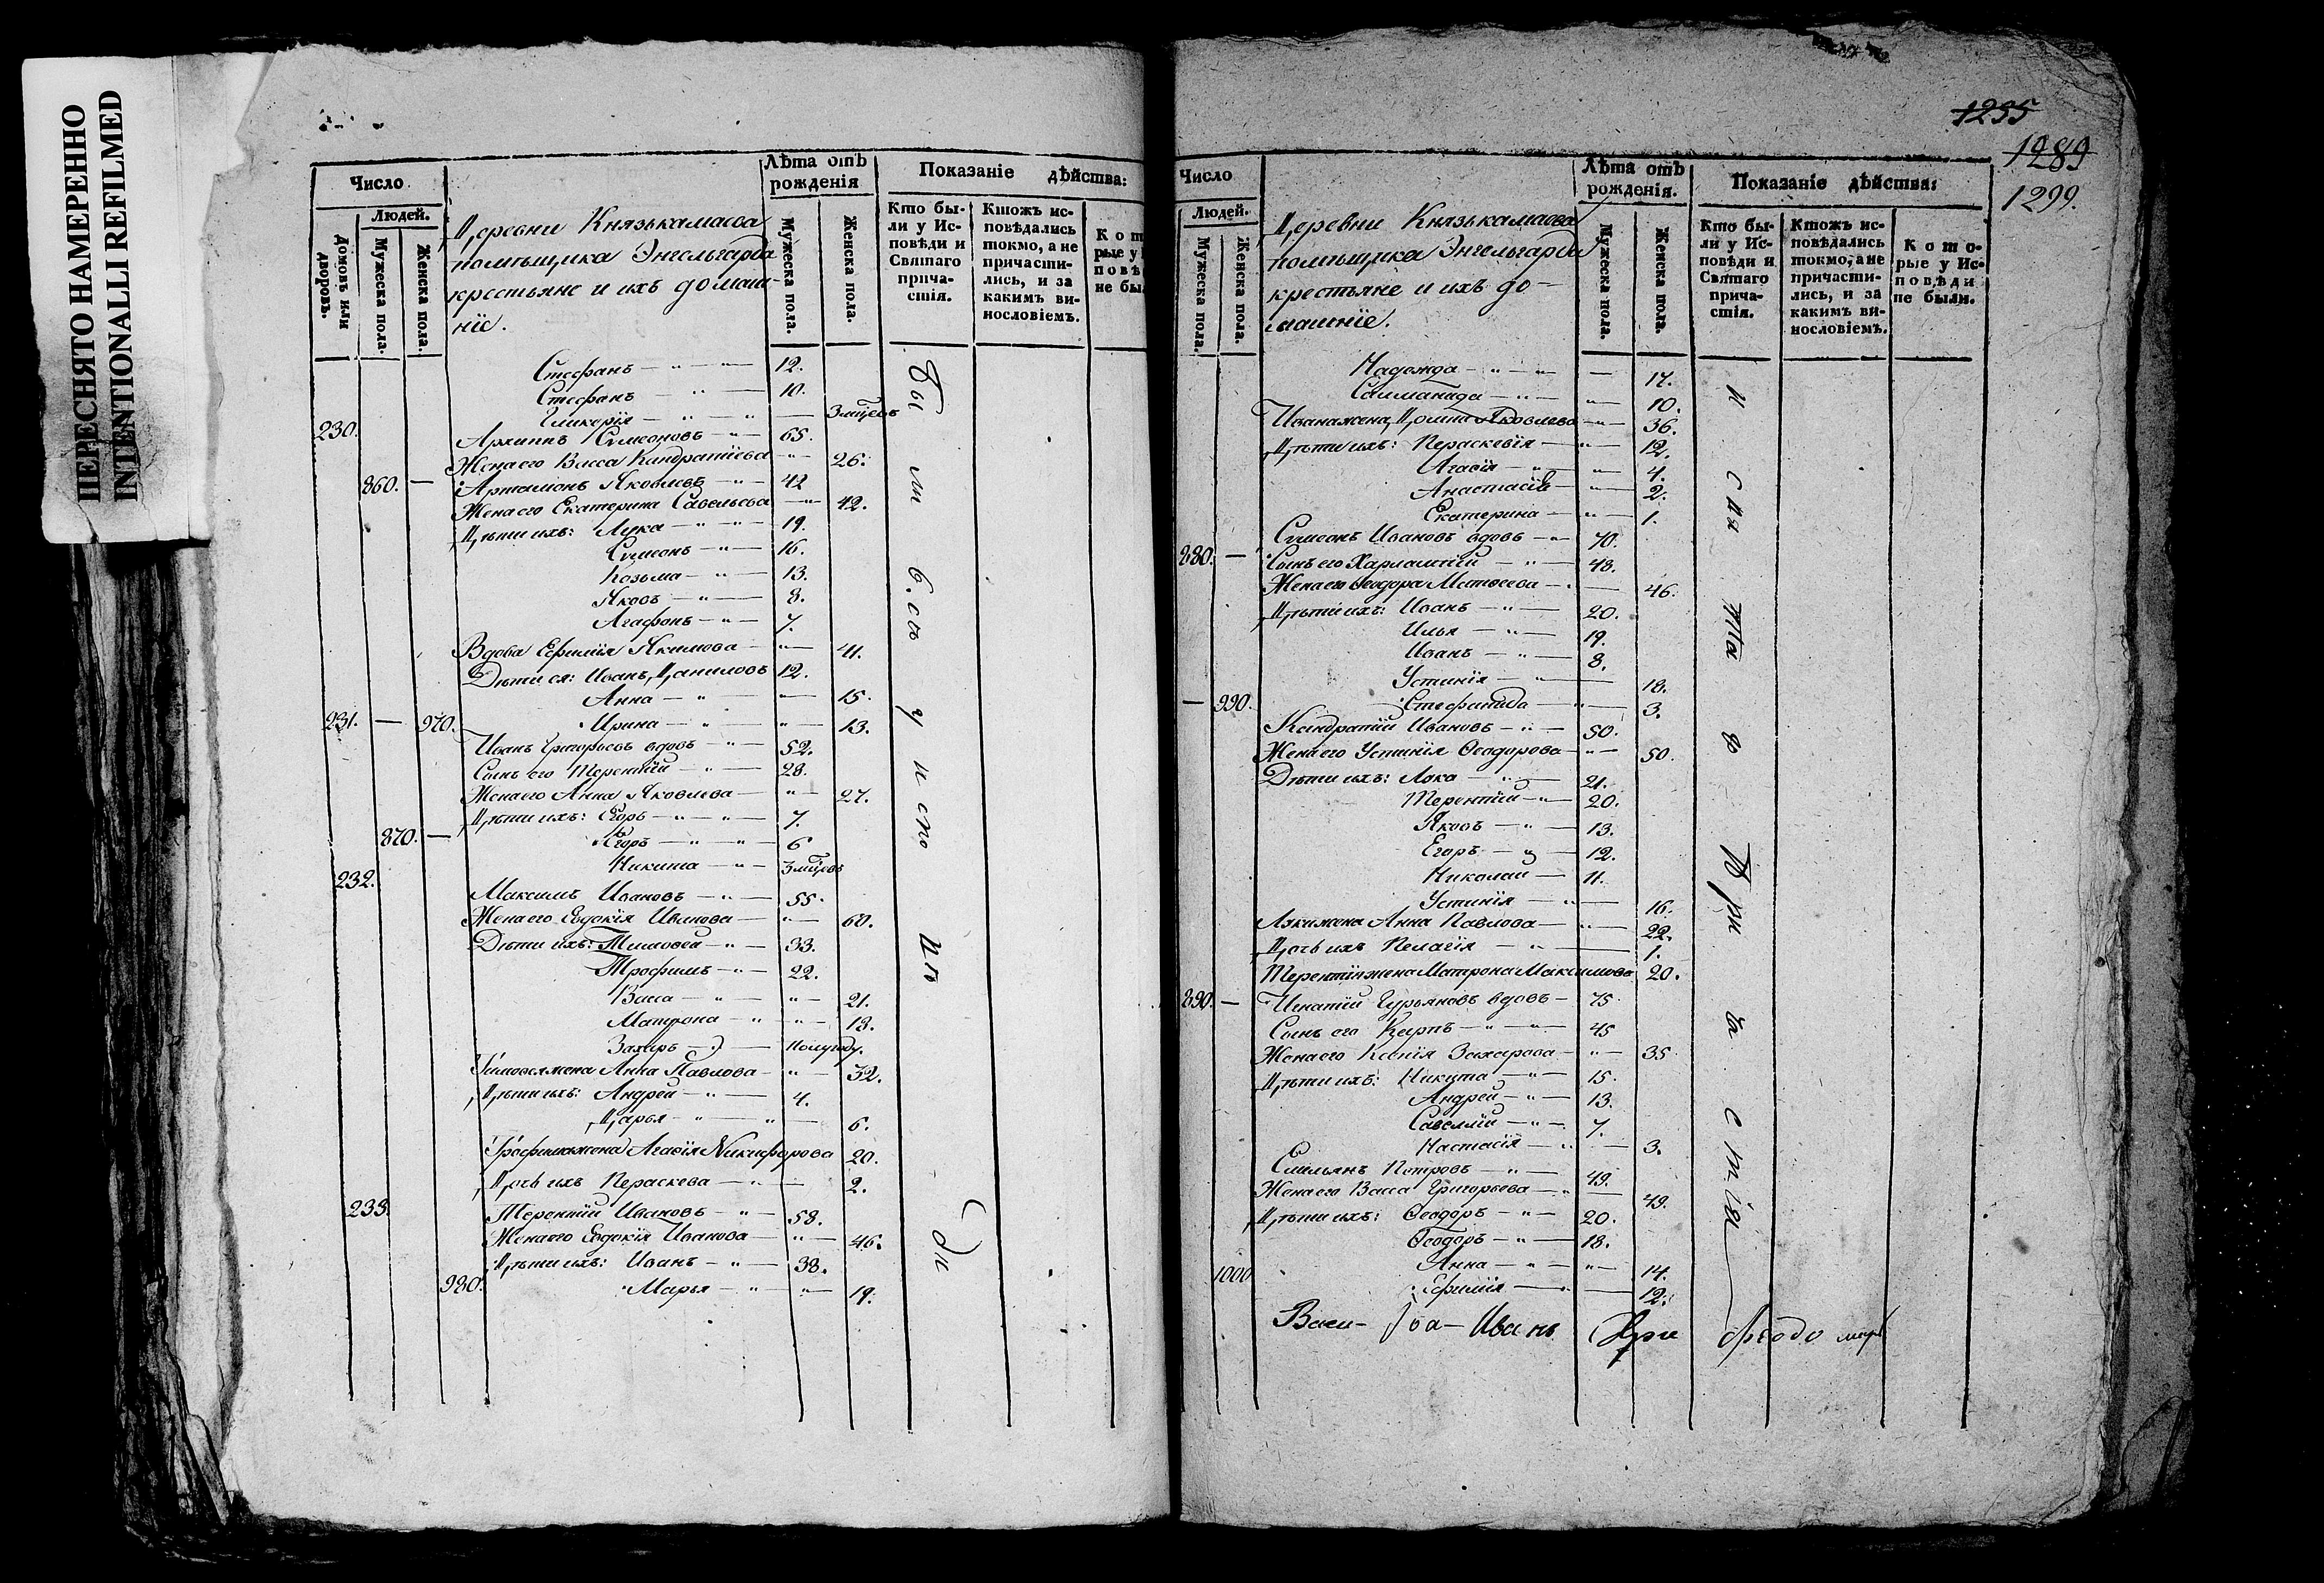 ПЕРЕСНЯТО НАМЕРЕННО
INTENTIONALLI REFILMED
Число
Лѣта отъ рожденія
Показаніе дѣйства:
Людей.
Домовъ или дворовъ.
Мужеска пола.
Женска пола.
Деревни Князькамаева
помѣщика Энгельгарда
крестьяне и ихъ домаш-
ніе.
Мужеска пола.
Женска пола.
Кто бы-
ли у Ис-
повѣди и
Святаго
прича-
стія.
Ктожъ ис-
повѣдались
токмо, а не
причасти-
лись, и за
какимъ ви-
нословіемъ.
Кот
рые у
повѣ
не бы
Стефанъ — 12.
Стефанъ — 10.
Гликерія — 3 мѣцовъ
230. Архиппъ Сѵмеоновъ — 65.
Жена его Васса Киндратіева — 26.
860. — Артамонъ Яковлевъ — 42
Жена его Екатерина Савельева — 42.
Дѣти ихъ: Лука — 19.
Сѵмеонъ — 16.
Козьма — 13.
Яковъ — 8.
Агафонъ — 7.
Вдова Ефимія Якимова — 41.
Дѣти ея: Иванъ Даниловъ 12.
Анна — 15.
231. — 970. Ирина — 13.
Иванъ Григорьевъ вдовъ — 52.
Сынъ его Терентій — 28.
Жена его Анна Яковлева — 27.
Дѣти ихъ: Егоръ — 7.
870. — Егоръ — 6
Никита — 3 мѣцовъ
232.
Максимъ Ивановъ — 55.
Жена его Евдокія Иванова — 60.
Дѣти ихъ: Тимофей — 33.
Трофимъ — 22.
Васса — 21.
Матрона — 18.
Захаръ — полугоду.
Тимофея жена Анна Павлова — 32.
Дѣти ихъ: Андрей — 4.
Дарья — 6.
Трофима жена Агафія Никифорова 20.
Дочь ихъ Параскева — 2.
233. Терентій Ивановъ — 58.
Жена его Евдокія Иванова — 46.
Дѣти ихъ: Иванъ — 38.
980. Марья — 19.
1255
1289
1299.
Число
Лѣта отъ рожденія.
Показаніе дѣйства:
Людей.
Мужеска пола.
Женска пола.
Деревни Князькамаева
помѣщика Энгельгарда
крестьяне и ихъ до-
машніе.
Мужеска пола.
Женска пола.
Кто бы-
ли у Ис-
повѣди и
Святаго
прича-
стія.
Ктожъ ис-
повѣдались
токмо, а не
причасти-
лись, и за
какимъ ви-
нословіемъ.
Кото-
рые у Ис-
повѣди
не были.
Надежда — 17.
— 10.
Ивана жена Домна Яковлева — 36.
Дѣти ихъ: Пераскевія — 12.
Агафія — 4.
Анастасія — 2.
Екатерина — 1.
Сѵмеонъ Ивановъ вдовъ — 70.
880. — Сынъ его Харлампій — 48.
Жена его Ѳеодора Матвеева — 46.
Дѣти ихъ: Иванъ — 20.
Илья — 19.
Иванъ — 8.
Устинія — 18.
— 990. Стефанида — 3.
Кондратій Ивановъ — 50.
Жена его Устинія Ѳеодорова — 50.
Дѣти ихъ: Лука — 21.
Терентій — 20.
Яковъ — 13.
Егоръ — 12.
Николай — 11.
Устинія — 16.
Луки жена Анна Павлова — 22.
Дочь ихъ Пелагія — 1.
Терентія жена Матрона Максимова 20.
890. — Игнатій Гурьяновъ вдовъ — 75.
Сынъ его Карпъ — 45
Жена его Ксенія Захарова — 35.
Дѣти ихъ: Никита — 15.
Андрей — 13.
Савелій — 7.
Настасія — 3.
Емильянъ Петровъ — 49.
Жена его Васса Григорьева — 49.
Дѣти ихъ: Ѳеодоръ — 20.
Ѳеодоръ — 18.
Анна — 14.
1000 Ефимія — 12.